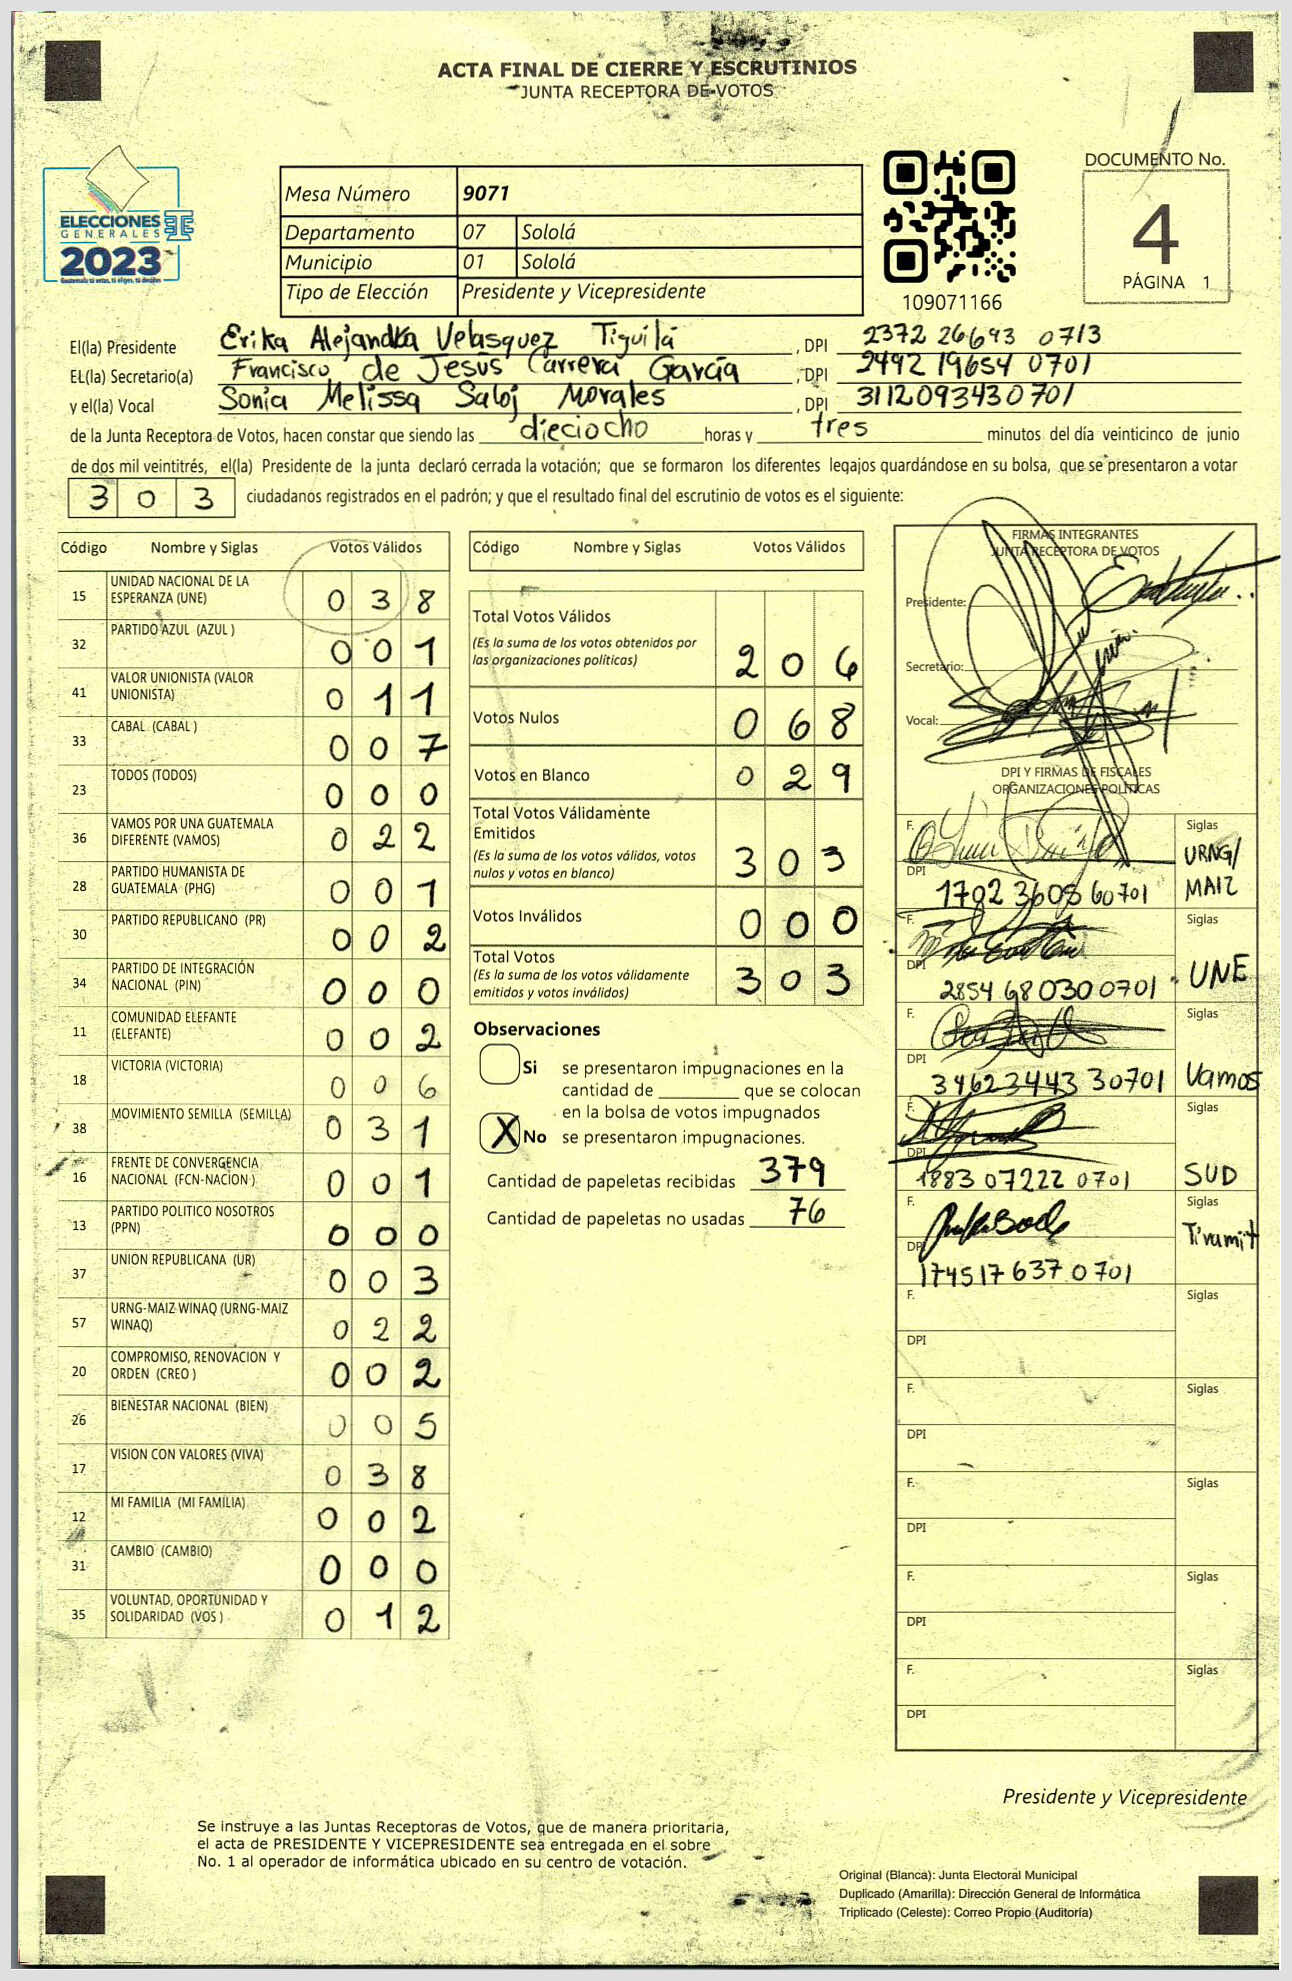 ACTA FINAL DE CIERRE Y ESCRUTINIOS
JUNTA RECEPTORA DE VOTOS
ELECCIONES
GENERALES
2023
Mesa Número 9071
Departamento 07 Sololá
Municipio 01 Sololá
Tipo de Elección Presidente y Vicepresidente
109071166
DOCUMENTO No.
4
PÁGINA 1
El(la) Presidente Erika Alejandra Velasquez Tiguilá , DPI 2372 26693 0713
EL(la) Secretario(a) Francisco de Jesús Carrera García , DPI 2492 19654 0701
y el(la) Vocal Sonia Melissa Saloj Morales , DPI 3112093430701
de la Junta Receptora de Votos, hacen constar que siendo las dieciocho horas y tres minutos del día veinticinco de junio
de dos mil veintitrés, el(la) Presidente de la junta declaró cerrada la votación; que se formaron los diferentes legajos guardándose en su bolsa, que se presentaron a votar
303 ciudadanos registrados en el padrón; y que el resultado final del escrutinio de votos es el siguiente:
Código Nombre y Siglas Votos Válidos
15 UNIDAD NACIONAL DE LA
ESPERANZA (UNE) 038
32 PARTIDO AZUL (AZUL ) 001
41 VALOR UNIONISTA (VALOR
UNIONISTA) 011
33 CABAL (CABAL ) 007
23 TODOS (TODOS) 000
36 VAMOS POR UNA GUATEMALA
DIFERENTE (VAMOS) 022
28 PARTIDO HUMANISTA DE
GUATEMALA (PHG) 001
30 PARTIDO REPUBLICANO (PR) 002
34 PARTIDO DE INTEGRACIÓN
NACIONAL (PIN) 000
11 COMUNIDAD ELEFANTE
(ELEFANTE) 002
18 VICTORIA (VICTORIA) 006
38 MOVIMIENTO SEMILLA (SEMILLA) 031
16 FRENTE DE CONVERGENCIA
NACIONAL (FCN-NACION ) 001
13 PARTIDO POLITICO NOSOTROS
(PPN) 000
37 UNION REPUBLICANA (UR) 003
57 URNG-MAIZ WINAQ (URNG-MAIZ
WINAQ) 022
20 COMPROMISO, RENOVACION Y
ORDEN (CREO ) 002
26 BIENESTAR NACIONAL (BIEN) 005
17 VISION CON VALORES (VIVA) 038
12 MI FAMILIA (MI FAMILIA) 002
31 CAMBIO (CAMBIO) 000
35 VOLUNTAD, OPORTUNIDAD Y
SOLIDARIDAD (VOS ) 012
Código Nombre y Siglas Votos Válidos
Total Votos Válidos
(Es la suma de los votos obtenidos por
las organizaciones políticas) 206
Votos Nulos 068
Votos en Blanco 029
Total Votos Válidamente
Emitidos
(Es la suma de los votos válidos, votos
nulos y votos en blanco) 303
Votos Inválidos 000
Total Votos
(Es la suma de los votos válidamente
emitidos y votos inválidos) 303
Observaciones
Si se presentaron impugnaciones en la
cantidad de ________ que se colocan
en la bolsa de votos impugnados
X No se presentaron impugnaciones.
Cantidad de papeletas recibidas 379
Cantidad de papeletas no usadas 76
FIRMAS INTEGRANTES
JUNTA RECEPTORA DE VOTOS
Presidente:
Secretario:
Vocal:
DPI Y FIRMAS DE FISCALES
ORGANIZACIONES POLÍTICAS
F. Siglas URNG/
MAIZ
DPI 1702 3608 60701
F. Siglas UNE
DPI 2854 68 0300701
F. Siglas Vamos
DPI 3462344330701
F. Siglas SUD
DPI 1883 07222 0701
F. Siglas
DPI 174517 637 0701
F. Siglas
DPI
F. Siglas
DPI
F. Siglas
DPI
F. Siglas
DPI
F. Siglas
DPI
Presidente y Vicepresidente
Se instruye a las Juntas Receptoras de Votos, que de manera prioritaria,
el acta de PRESIDENTE Y VICEPRESIDENTE sea entregada en el sobre
No. 1 al operador de informática ubicado en su centro de votación.
Original (Blanca): Junta Electoral Municipal
Duplicado (Amarilla): Dirección General de Informática
Triplicado (Celeste): Correo Propio (Auditoría)